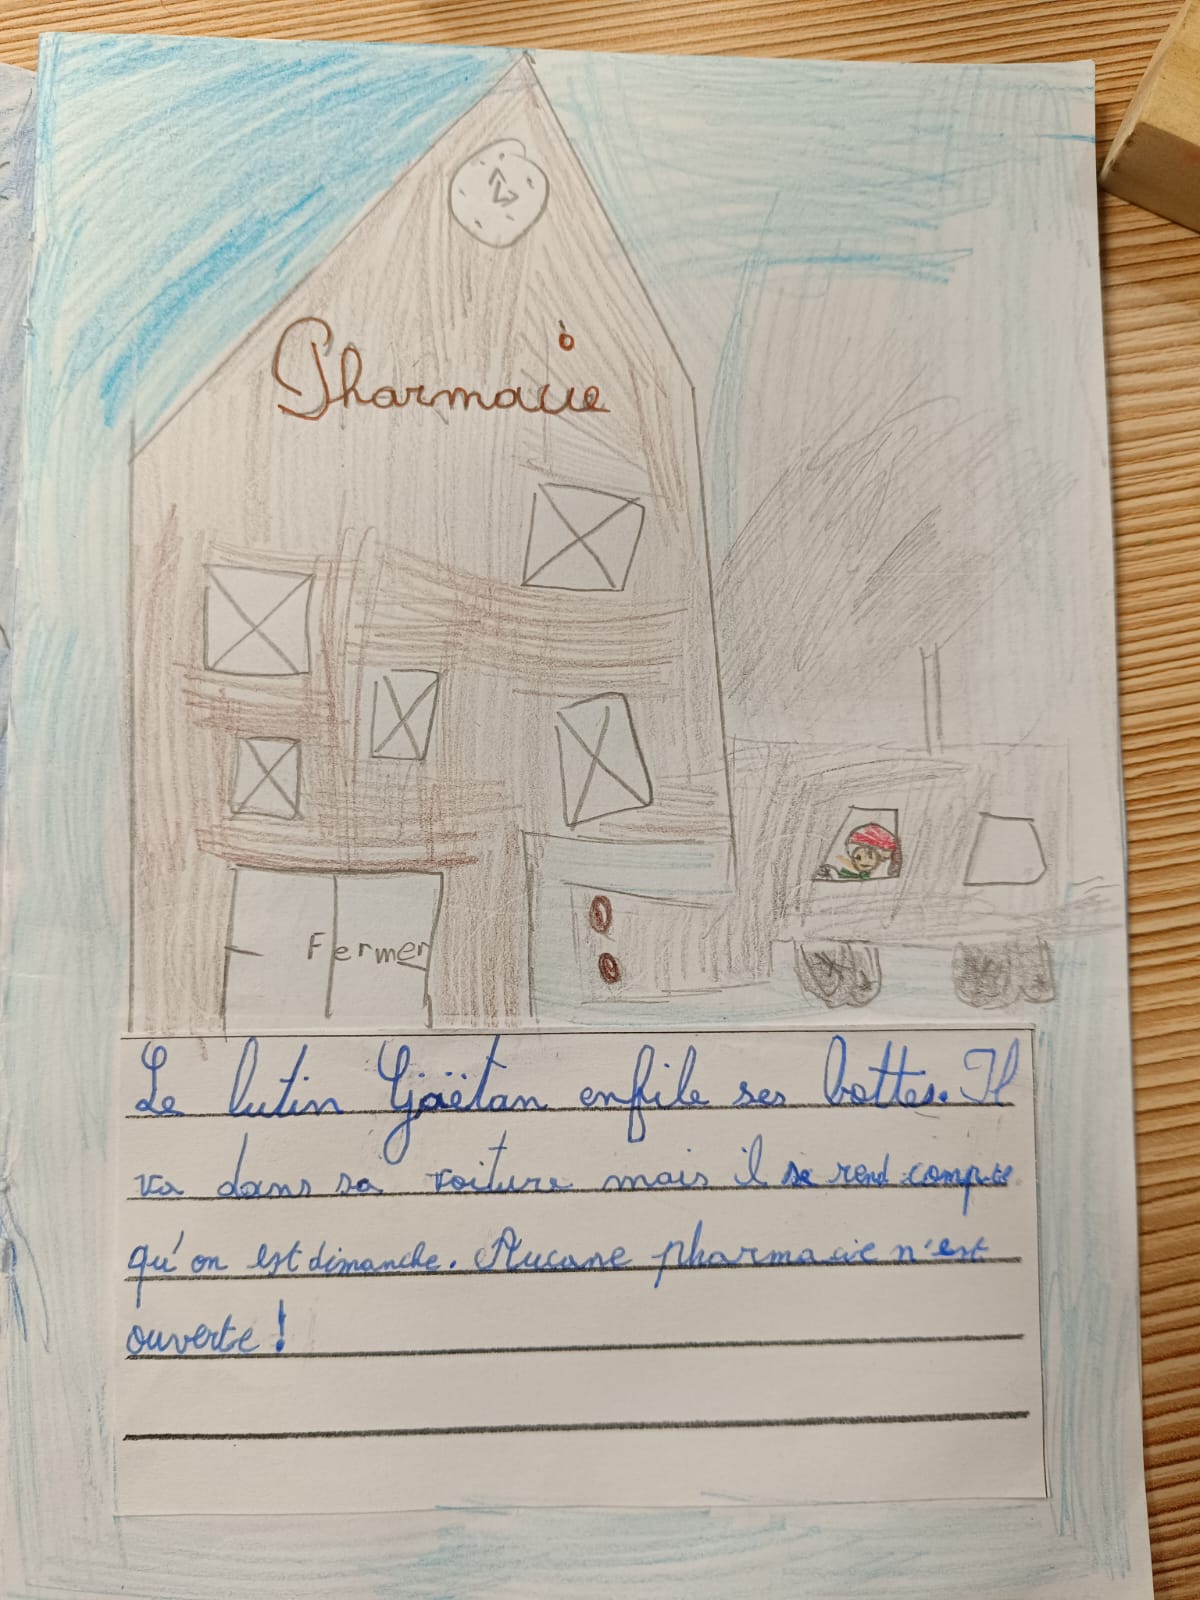 Pharmacie
Fermer
Le lutin Gaëtan enfile ses bottes. Il
va dans sa voiture mais il se rend compte
qu'on est dimanche. Aucune pharmacie n'est
ouverte !